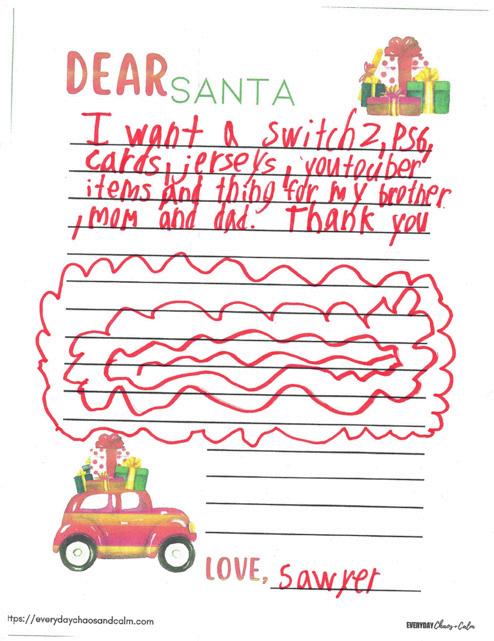 DEAR SANTA
I want a switch2, PS6,
cards, jerseys, youtouber
items and thing for my brother
, mom and dad. Thank you
LOVE, Sawyer
ttps://everydaychaosandcalm.com
EVERYDAY Chaos + Calm